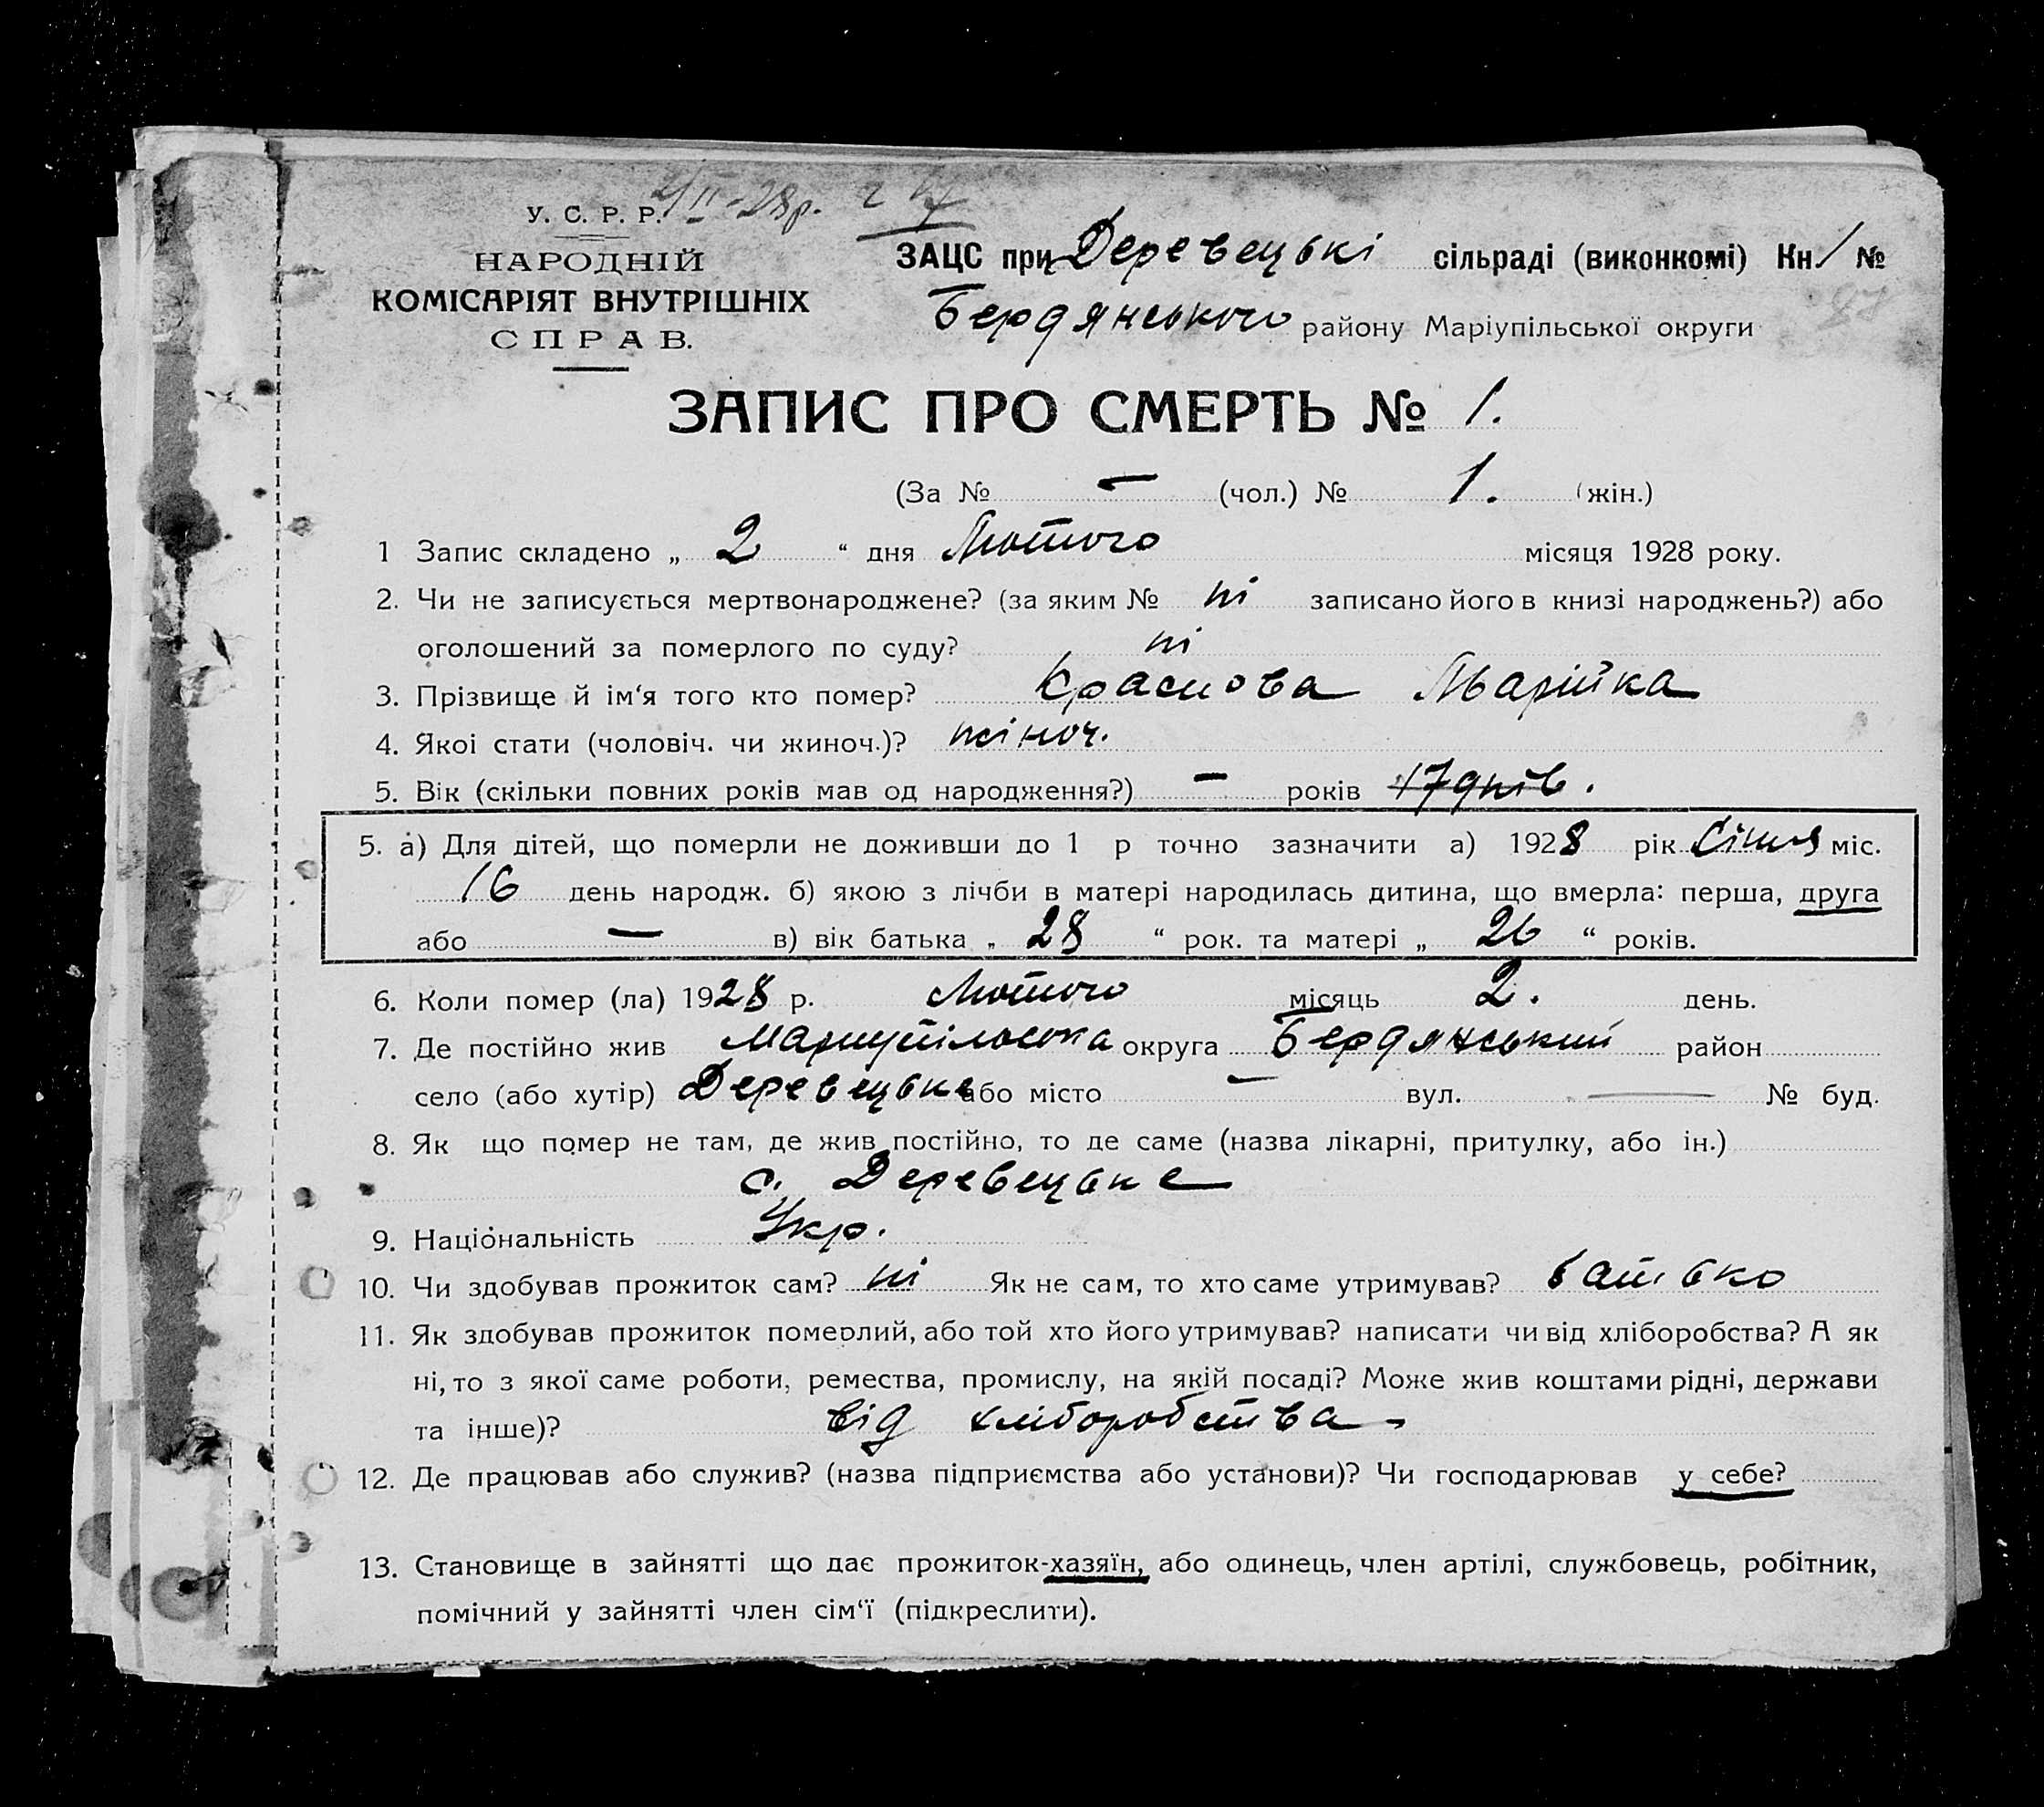 У. С. Р. Р.
НАРОДНІЙ
КОМІСАРІЯТ ВНУТРІШНІХ
СПРАВ.
ЗАЦС при Деревецькі сільраді (виконкомі) Кн. 1 №
Бердянського району Маріупільської округи
ЗАПИС ПРО СМЕРТЬ № 1.
(За № – (чол.) № 1. (жін.)
1 Запис складено „ 2 “ дня Лютого місяця 1928 року.
2. Чи не записується мертвонароджене? (за яким № ні записано його в книзі народжень?) або
оголошений за померлого по суду? ні
3. Прізвище й ім‘я того кто помер? Краснова Марійка
4. Якоі стати (чоловіч. чи жиноч.)? жіноч.
5. Вік (скільки повних років мав од народження?) – років 17 днів.
5. а) Для дітей, що померли не доживши до 1 р точно зазначити а) 1928 рік Січня міс.
16 день народж. б) якою з лічби в матері народилась дитина, що вмерла: перша, друга
або – в) вік батька „ 28 “ рок. та матері „ 26 “ років.
6. Коли помер (ла) 1928 р. Лютого місяць 2. день.
7. Де постійно жив Мариупільська округа Бердянський район
село (або хутір) Деревецьке або місто – вул. – № буд.
8. Як що помер не там, де жив постійно, то де саме (назва лікарні, притулку, або ін.)
с. Деревецьке
9. Національність Укр.
10. Чи здобував прожиток сам? ні Як не сам, то хто саме утримував? батько
11. Як здобував прожиток померлий, або той хто його утримував? написати чи від хліборобства? А як
ні, то з якої саме роботи, ремества, промислу, на якій посаді? Може жив коштами рідні, держави
та інше)? від хліборобства
12. Де працював або служив? (назва підприємства або установи)? Чи господарював у себе?
13. Становище в зайнятті що дає прожиток-хазяїн, або одинець, член артілі, службовець, робітник,
помічний у зайнятті член сім‘ї (підкреслити).